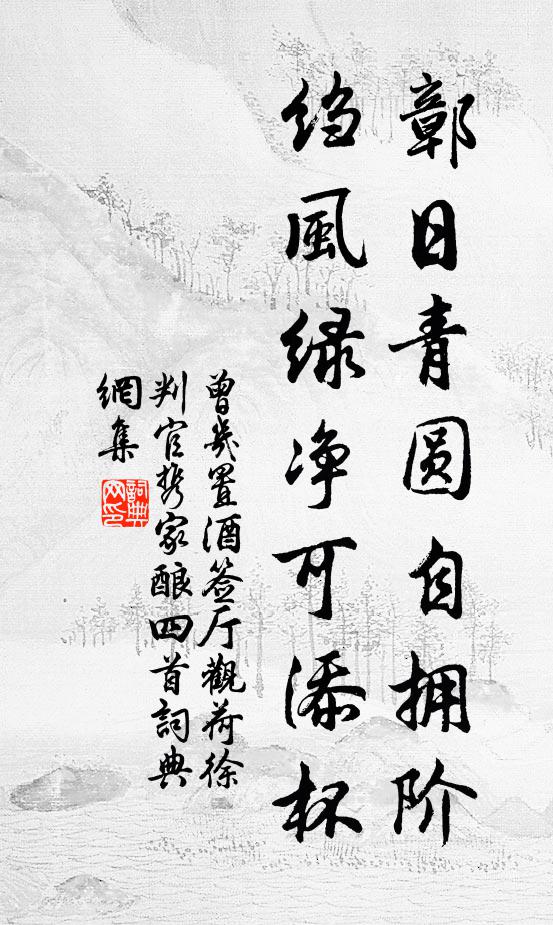 鄣日青圆自拥阶
绉風绿净可添杯
曾幾置酒签厅觀荷徐
判官携家酿四首詞典
網集
詞典
网印